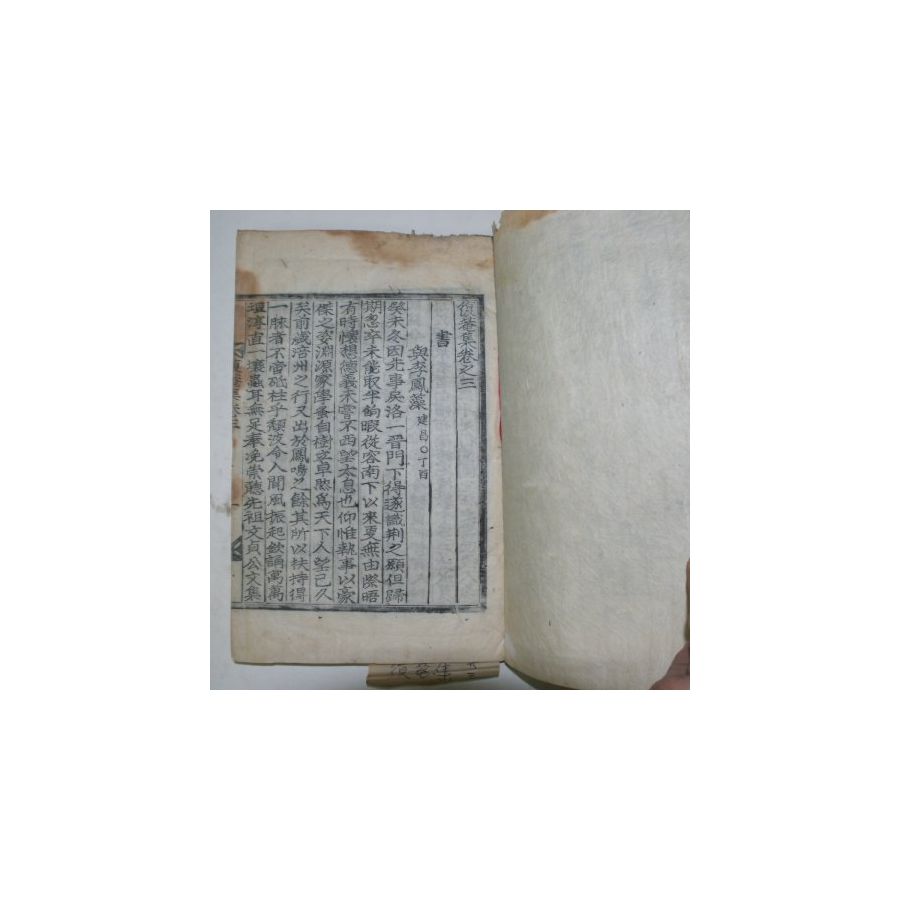 俛菴集卷之三
書
與李鳳藻 建昌○丁酉
癸未冬因先事戾洛一晉門下得遂識荆之願但歸
期忽卒未能取半餉暇從容南下以來夏無由際晤
有時懷想德義未嘗不西望太息也仰惟執事以豪
傑之姿淵源家學蚤自樹立卓然爲天下人望已久
矣前歲涪州之行又出於鳳鳴之餘其所以扶持得
一脉者不啻砥柱乎頹波令人聞風振起欽誦萬萬
壇淳直一壤蟲耳無足奉浼崇聽先祖文貞公文集
菴集